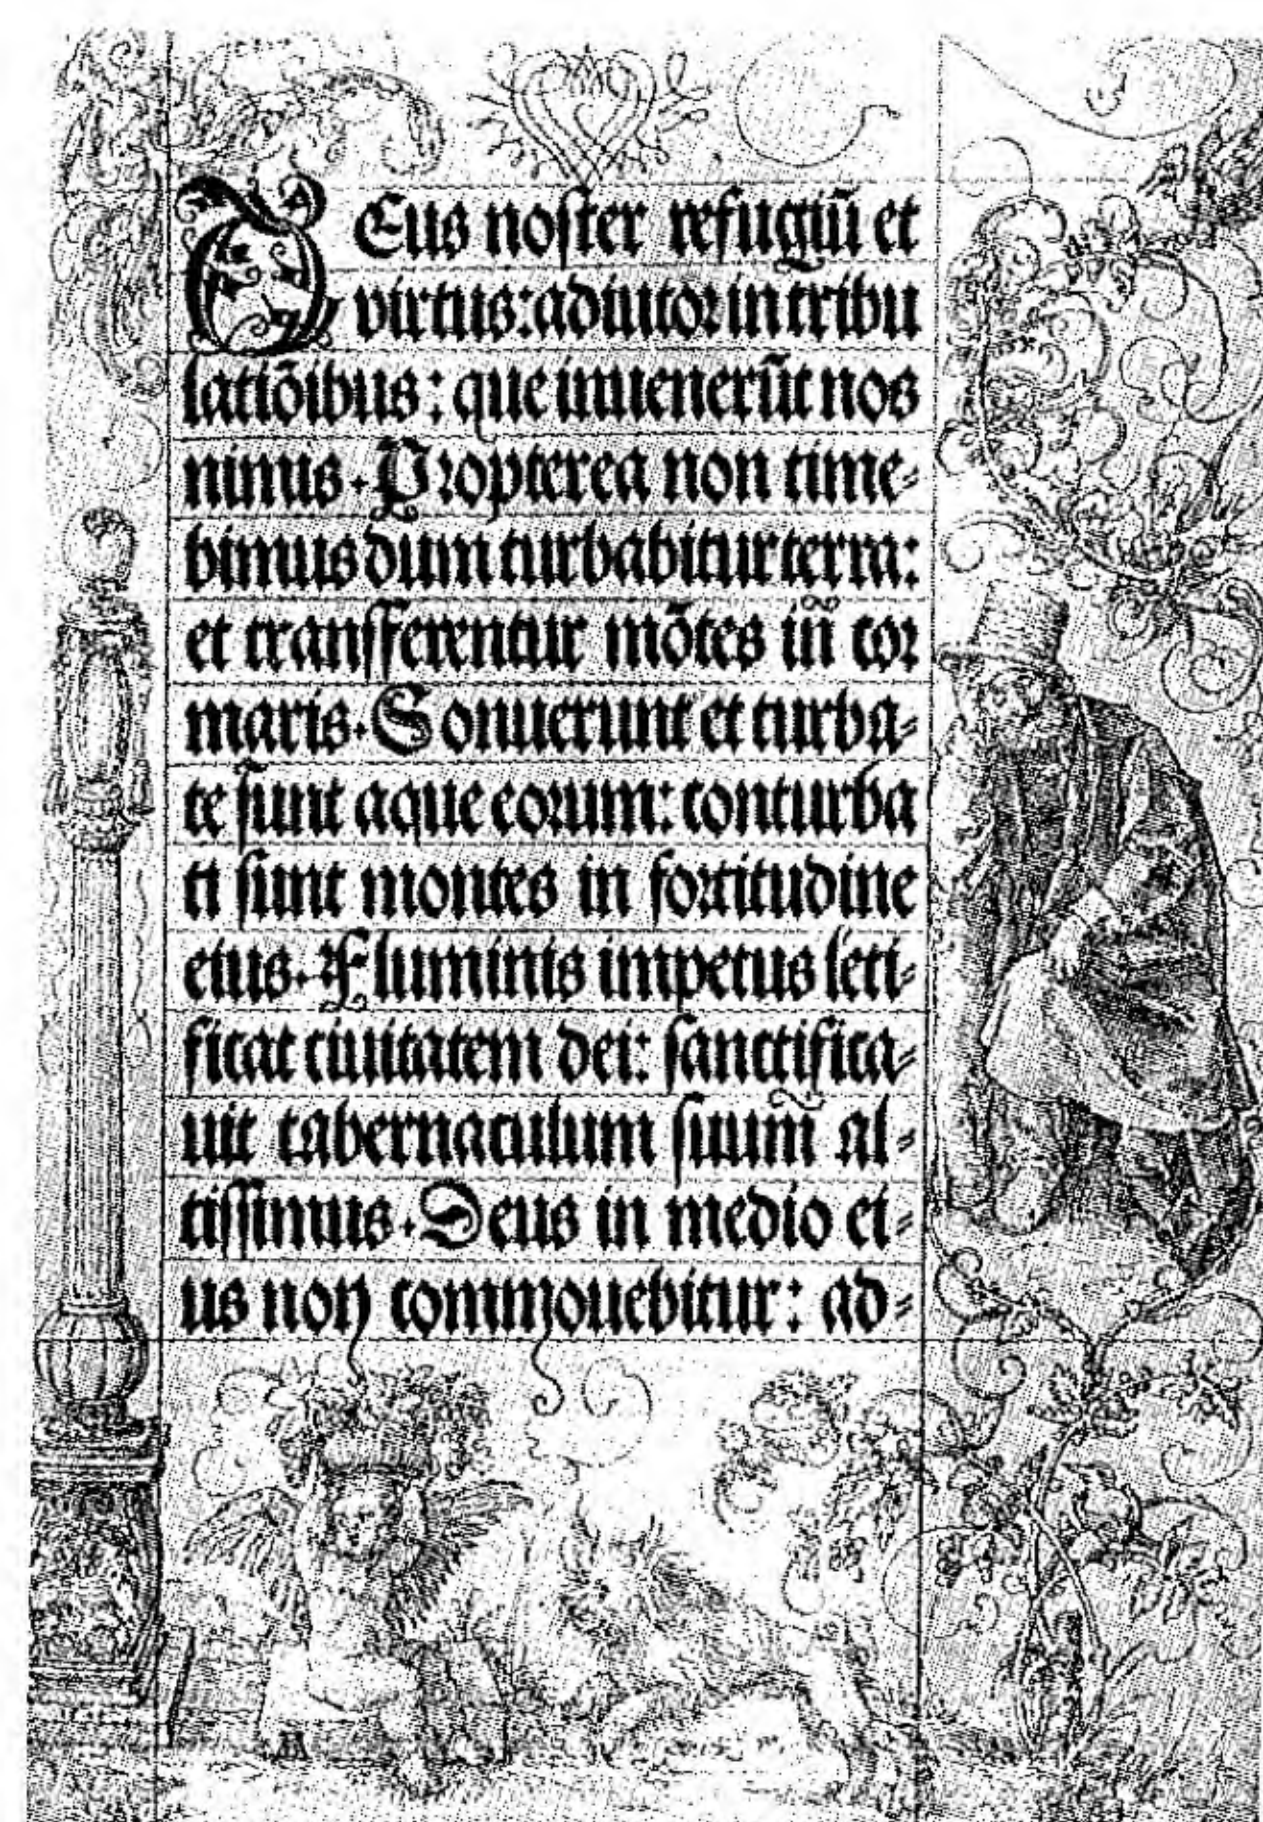 DEus noster refugiū et
virtus: adiutor in tribu
latiōibus: que inuenerūt nos
nimis. Propterea non time-
bimus dum turbabitur terra:
et transferentur mōtes in cor
maris. Sonuerunt et turba-
te sunt aque eorum: conturba
ti sunt montes in fortitudine
eius. Fluminis impetus leti-
ficat ciuitatem dei: sanctifica-
uit tabernaculum suum al-
tissimus. Deus in medio ei-
us non commouebitur: ad-